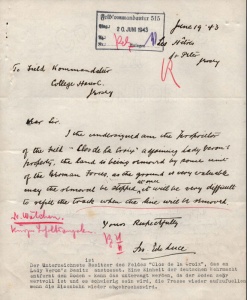 Feldkommandantur 515
20. JUNI 1943
June 19 '43
Les Hêtres
St Peter
Jersey
To Field Kommandatur
College House
Jersey
Dear Sir.
I the undersigned am the proprietor
of the field "Clos de la Croix" adjoining Lady Veron's
property, the sand is being removed by some unit
of the German Forces, as the ground is very valuable
may the removal be stopped, it will be very difficult
to refill the track when the line will be removed.
Yours Respectfully
Der Unterzeichnete Besitzer des Feldes "Clos de la Croix", das an
Lady Veron's Besitz anstoesst. Eine Einheit der deutschen Wehrmacht
entfernt den Sand
wertvoll ist und es schwierig sein wird, die Trasse wieder aufzufuellen
wenn die Eisenbahn wieder